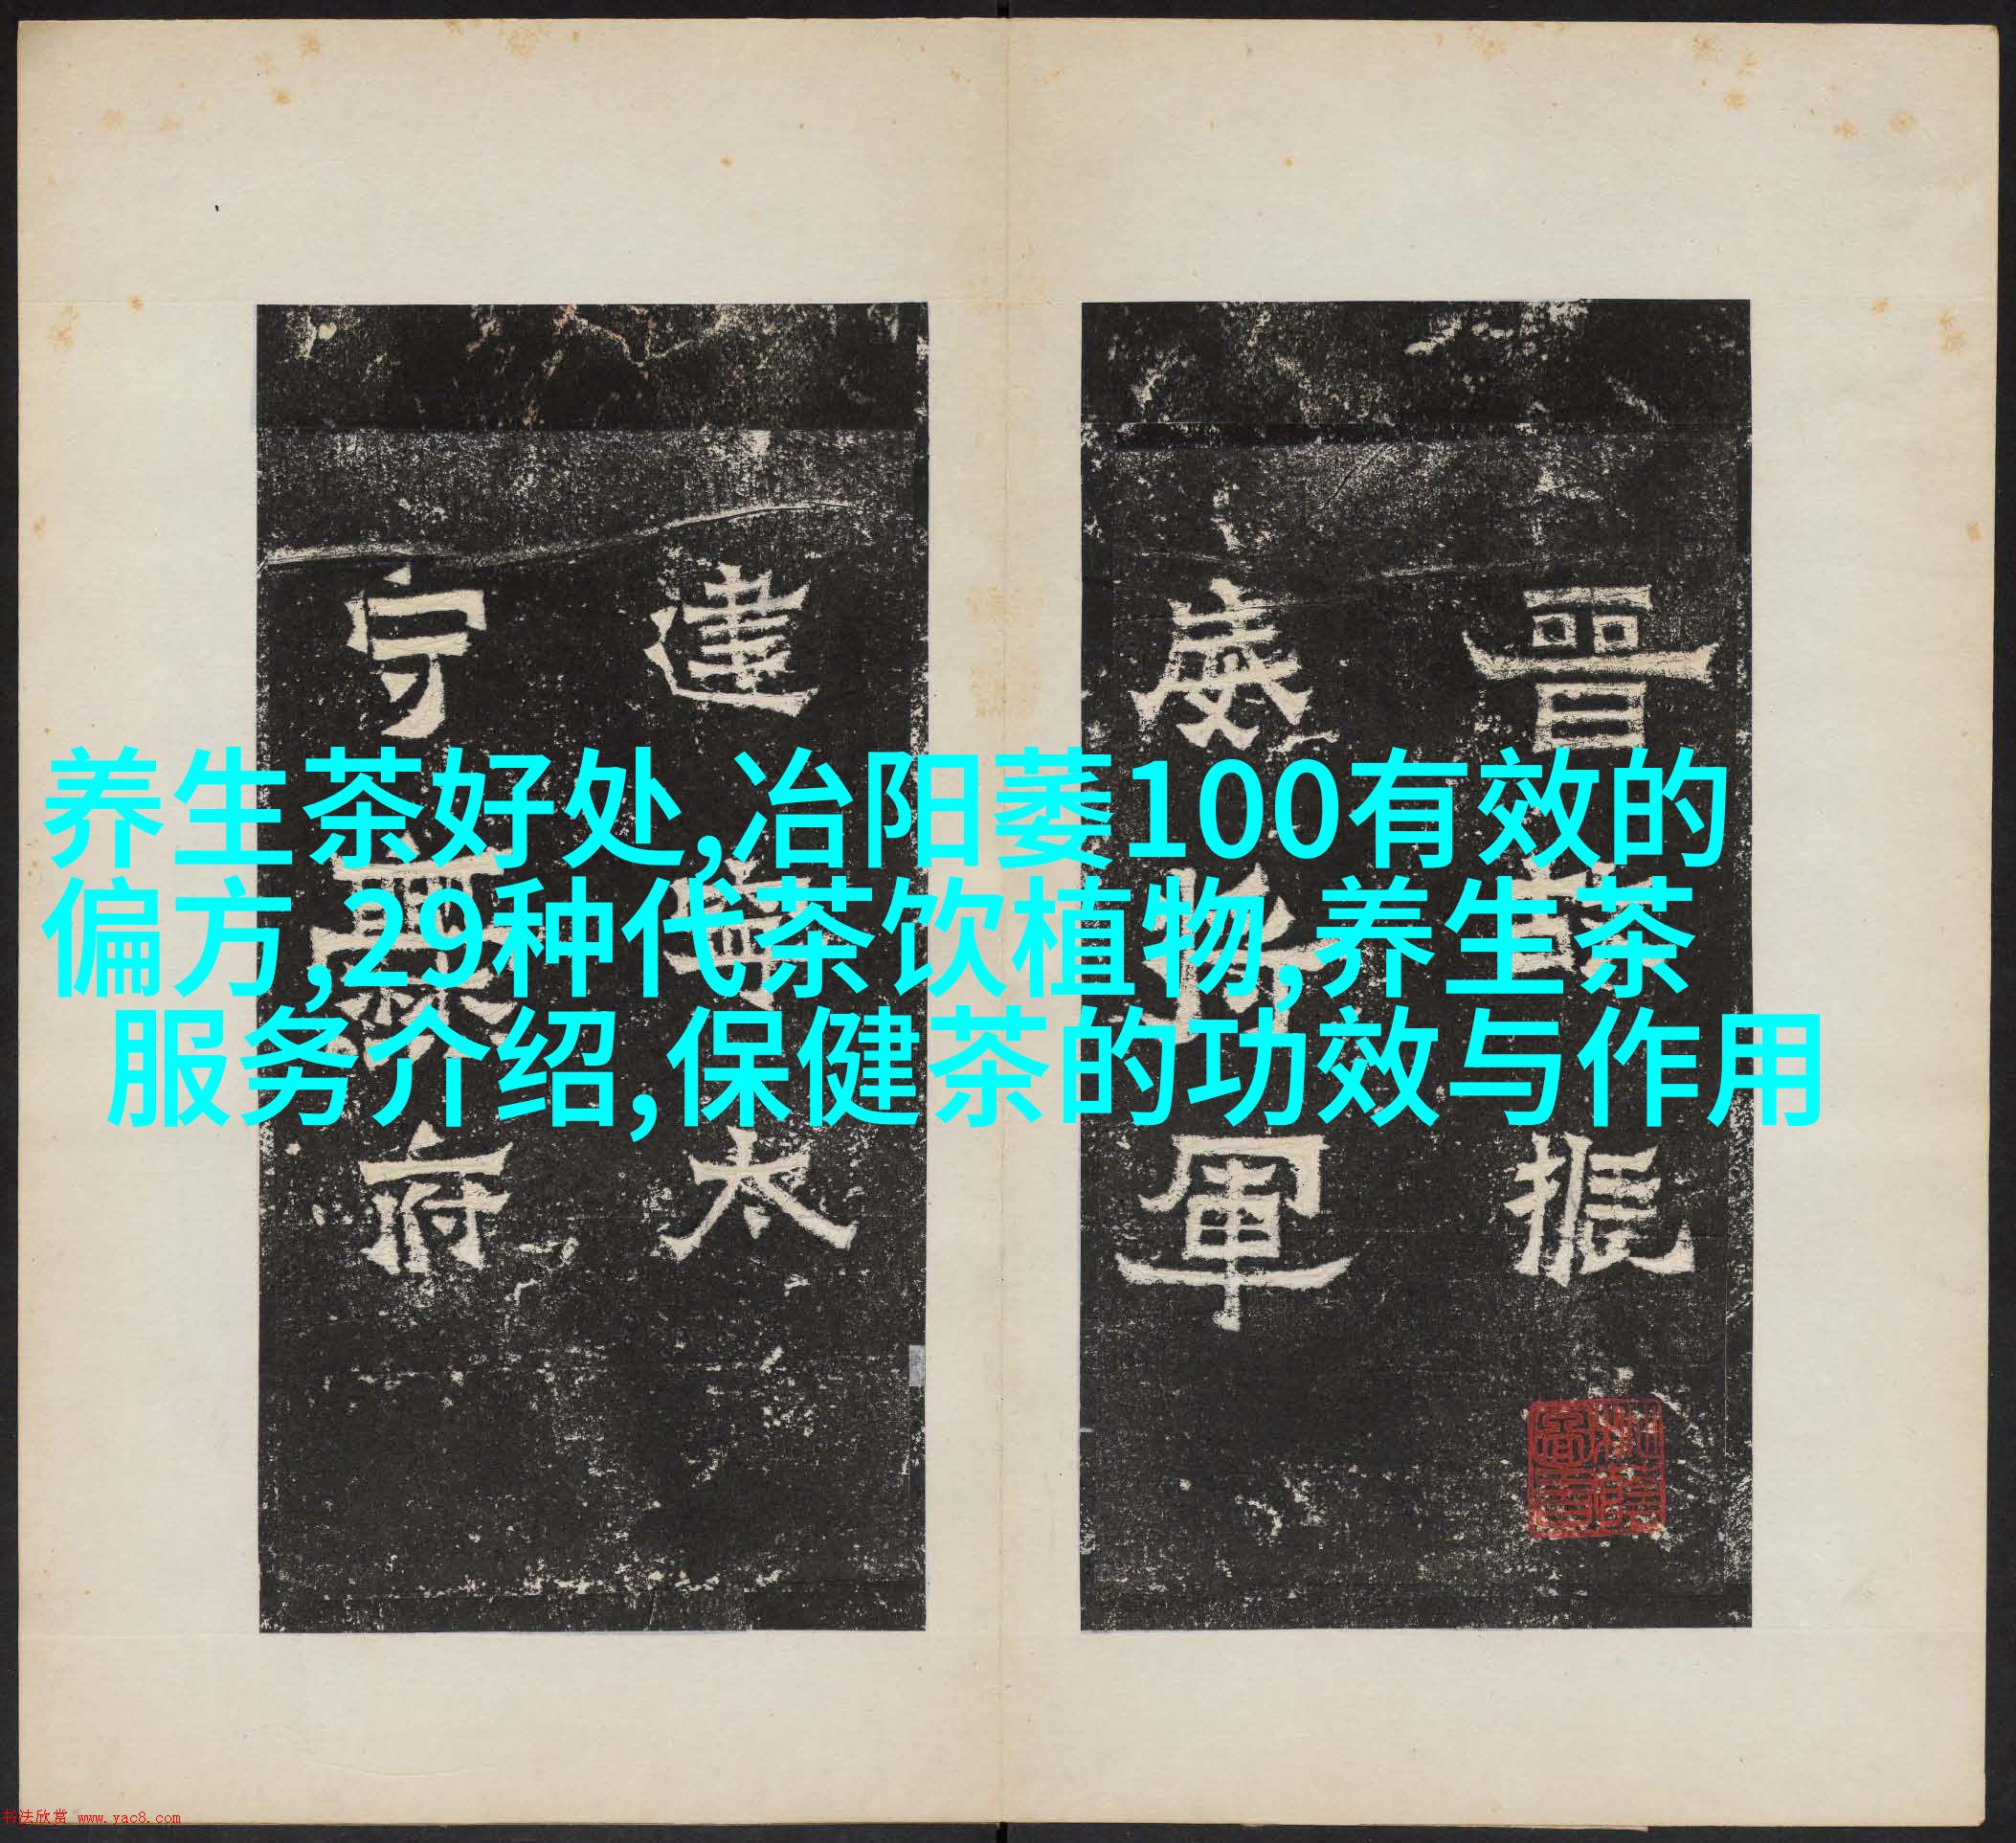 晋故振
威將軍
建寧太
守爨府
养生茶好处,冶阳萎100有效的
偏方,29种代茶饮植物,养生茶
服务介绍,保健茶的功效与作用
书法欣赏 www.yac8.com